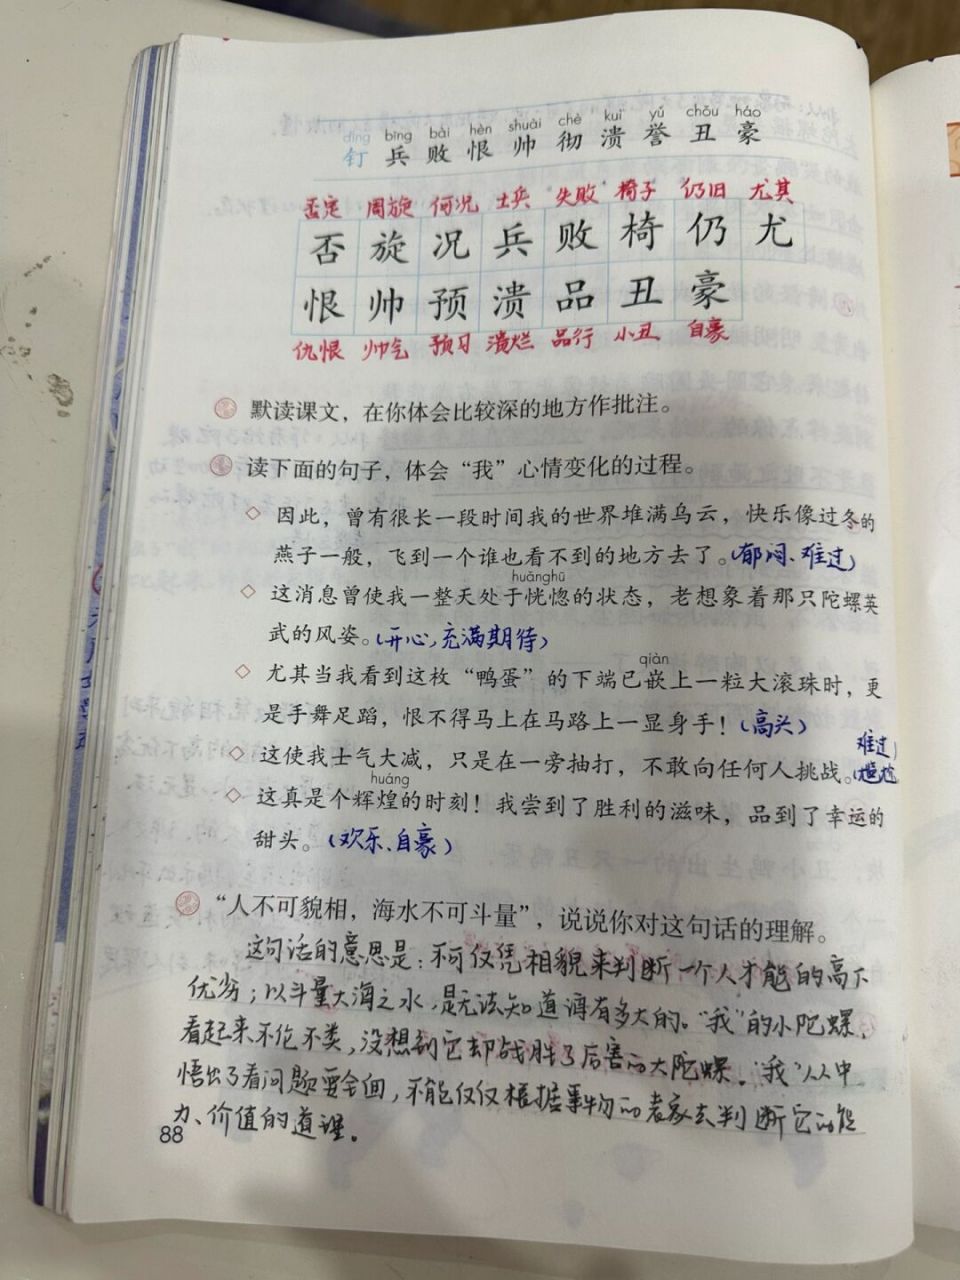 dīng bīng bài hèn shuài chè kuì yù chǒu háo
钉 兵 败 恨 帅 彻 溃 誉 丑 豪
否定 周旋 何况 士兵 失败 椅子 仍旧 尤其
否 旋 况 兵 败 椅 仍 尤
恨 帅 预 溃 品 丑 豪
仇恨 帅气 预习 溃烂 品行 小丑 自豪
默读课文，在你体会比较深的地方作批注。
读下面的句子，体会“我”心情变化的过程。
◇ 因此，曾有很长一段时间我的世界堆满乌云，快乐像过冬的
燕子一般，飞到一个谁也看不到的地方去了。（郁闷、难过）
huǎnghū
◇ 这消息曾使我一整天处于恍惚的状态，老想象着那只陀螺英
武的风姿。（开心，充满期待）
qiàn
◇ 尤其当我看到这枚“鸭蛋”的下端已嵌上一粒大滚珠时，更
是手舞足蹈，恨不得马上在马路上一显身手！（高兴）
◇ 这使我士气大减，只是在一旁抽打，不敢向任何人挑战。（尴尬
难过）
huáng
◇ 这真是个辉煌的时刻！我尝到了胜利的滋味，品到了幸运的
甜头。（欢乐、自豪）
“人不可貌相，海水不可斗量”，说说你对这句话的理解。
这句话的意思是：不可仅凭相貌来判断一个人才能的高下
优劣；以斗量大海之水，是无法知道海有多大的。“我”的小陀螺
看起来不伦不类，没想到它却战胜了厉害的大陀螺。“我”从中
悟出了看问题要全面，不能仅仅根据事物的表象去判断它的能
力、价值的道理。
88